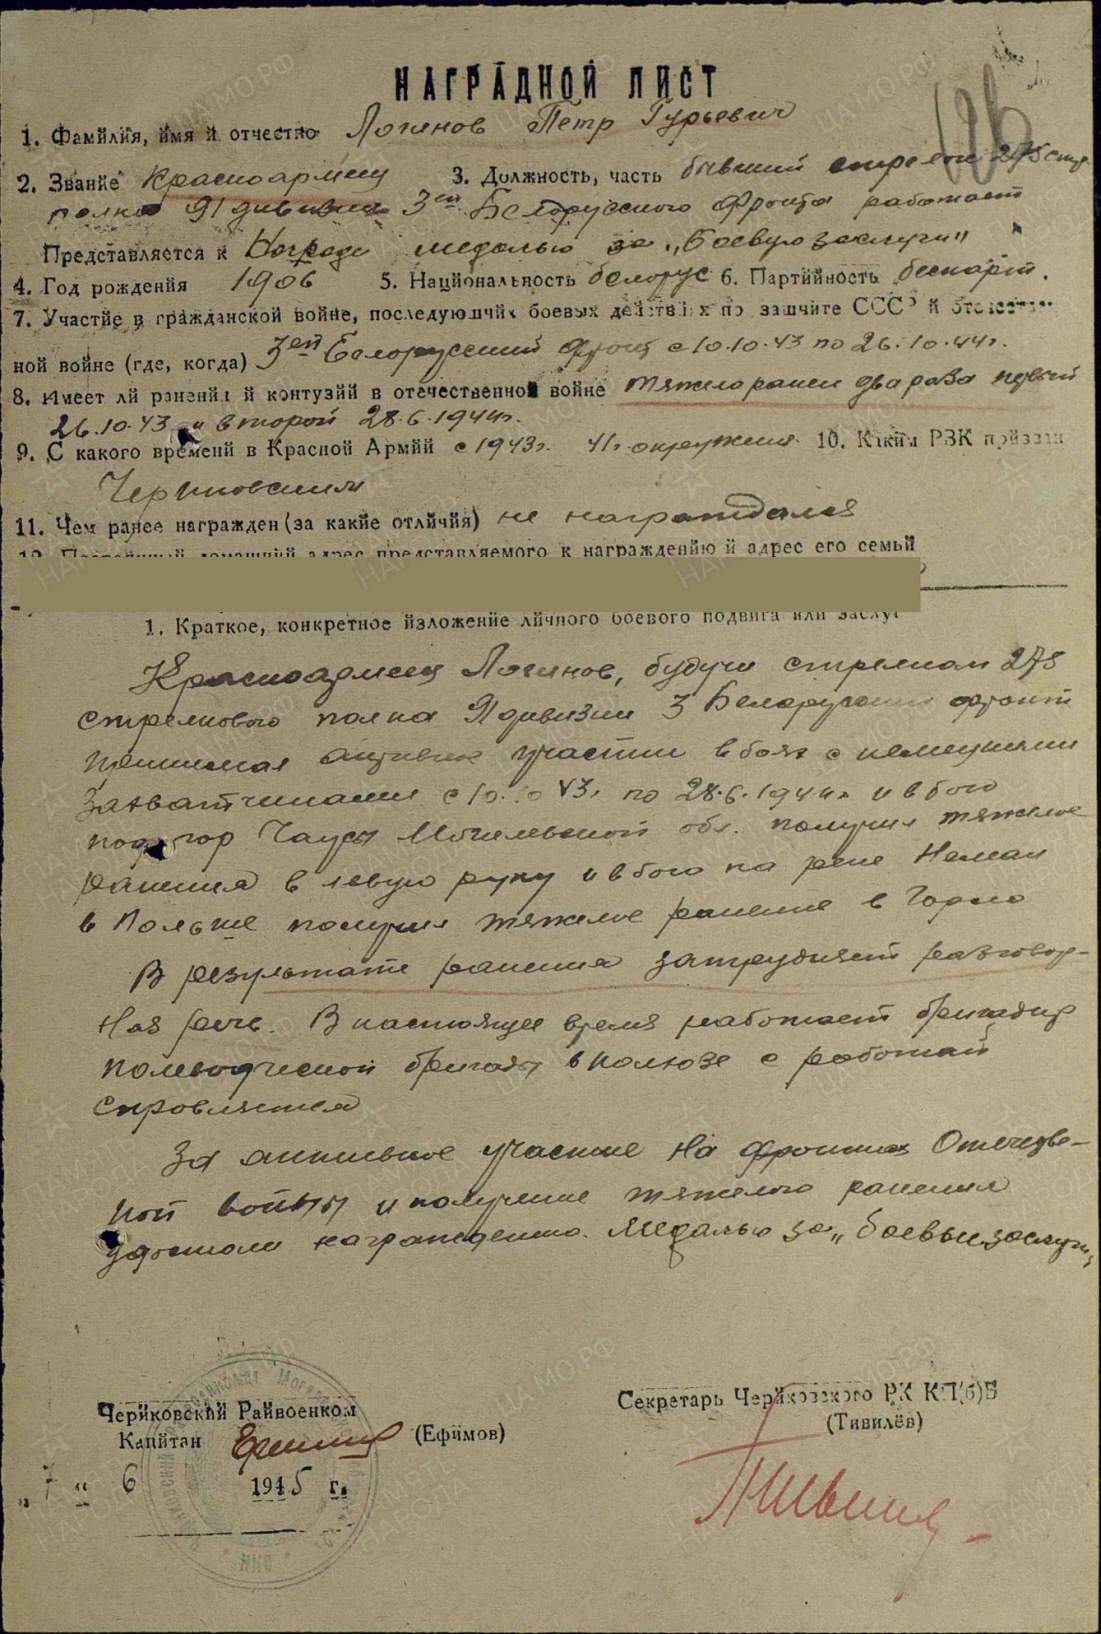 НАГРАДНОЙ ЛИСТ
1. Фамилия, имя и отчество Логинов Петр Гурьевич
2. Звание Красноармеец 3. Должность, часть бывший стрелок 275 стр.
полка 91 дивизии 3го Белорусского фронта работает
Представляется к Награде медалью за „Боевую заслуги"
4. Год рождения 1906 5. Национальность белорус 6. Партийность беспарт.
7. Участие в гражданской войне, последующих боевых действиях по защите СССР и отечествен-
ной войне (где, когда) 3ей Белорусский фронт с 10.10.43 по 26.10.44г.
8. Имеет ли ранения и контузии в отечественной войне тяжело ранен два раза первый
26.10.43 и второй 28.6.1944г.
9. С какого времени в Красной Армии с 1943г. 41г. окружения 10. Каким РВК призван
Чериковским
11. Чем ранее награжден (за какие отличия) не награждался
12. Постоянный домашний адрес представляемого к награждению и адрес его семьи
1. Краткое, конкретное изложение личного боевого подвига или заслуг
Красноармеец Логинов, будучи стрелком 275
стрелкового полка 91 дивизии 3 Белорусский фронт
активное участии в боях с немецкими
захватчиками с 10.10 43г. по 28.6.1944г. и в бою
под гор Чаусы Могилевской обл. получил тяжелое
ранения в левую руку и в бою на реке Неман
в Польше получил тяжелое ранение в Горло
В результате ранения затрудняет разговор-
ная речь. В настоящее время работает бригадир
полеводческой бригады в колхозе с работай
справляется
За активное участие на фронтах Отечестве-
ной войны и получение тяжелого ранения
удостоин награждению. Медалью за „боевые заслуги"
Чериковский Райвоенком
Капитан (Ефимов)
„7" 6 1945 г.
Секретарь Чериковского РК КП(б)Б
(Тивилёв)